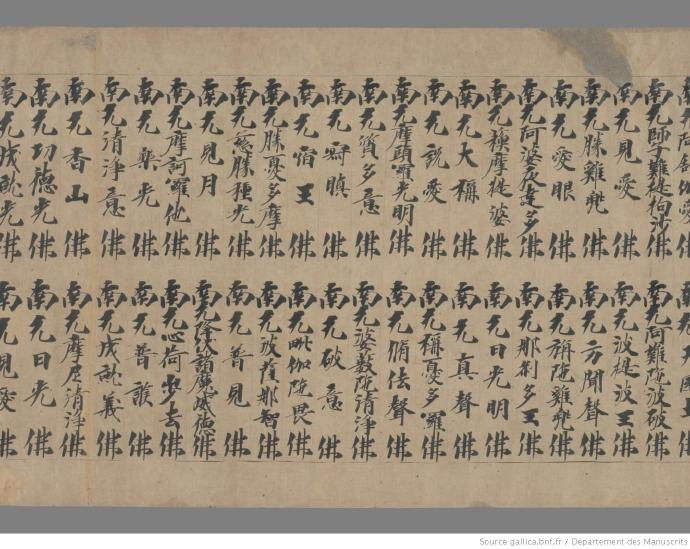 南无師子難提拘沙佛 南无阿難陀波破佛
南无見愛佛 南无波提波王佛
南无勝難兜佛 南无方聞聲佛
南无愛眼佛 南无稱陀難兜佛
南无阿婆夜達多佛 南无那刹多王佛
南无蘓摩提婆佛 南无日光明佛
南无大稱佛 南无真聲佛
南无說愛佛 南无稱憂多羅佛
南无摩頭羅光明佛 南无脩佉聲佛
南无質多意佛 南无婆薮陀清淨佛
南无瞋佛 南无破意佛
南无宿王佛 南无毗伽陀畏佛
南无勝憂多摩佛 南无波薩那智佛
南无慈勝種光佛 南无普見佛
南无見月佛 南无降伏諸魔威德佛
南无摩訶羅他佛 南无心荷步去佛
南无樂光佛 南无普護佛
南无清淨意佛 南无成就義佛
南无香山佛 南无摩尼清淨佛
南无功德光佛 南无日光佛
南无成就光佛 南无見愛佛
Source gallica.bnf.fr / Département des Manuscrits